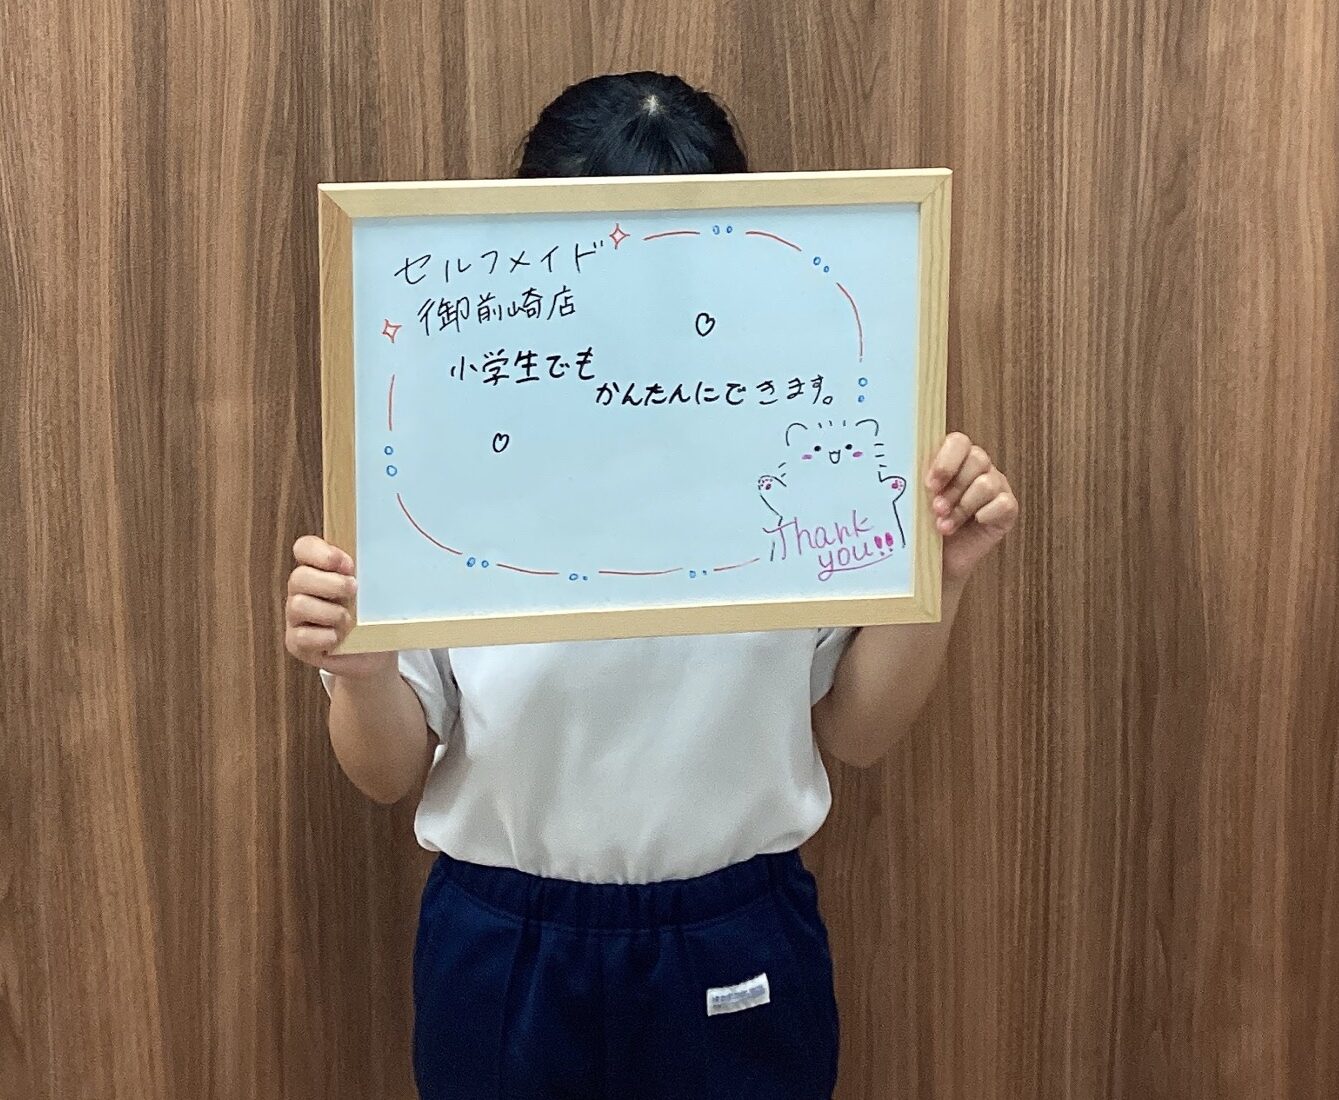 セルフメイド
御前崎店
小学生でも
かんたんにできます。
Thank
you!!